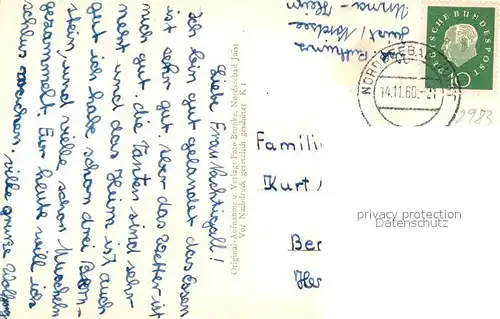 Liebe Frau Nachtigall!
Ich bin gut gelandet das Essen
ist sehr gut. Aber das Wetter ist
nich gut. die Tanten sind sehr
nett und das Heim ist auch
gut ich habe schon drei
stein, und viele schon Muscheln
gesammelt. Für heute will ich
schluss machen. viele grüße Wolfgang
Original-Aufnahme u. Verlag: Foto Brunke, Nordseebad Juist
Vor Nachdruck gesetzlich geschützt K 1
Juist / Nordsee
Heim
DEUTSCHE BUNDESPOST
10
NORDSEEBAD JUIST
14.11.60.-21
2983
Famili
Kurt
Be
He
privacy protection
Datenschutz